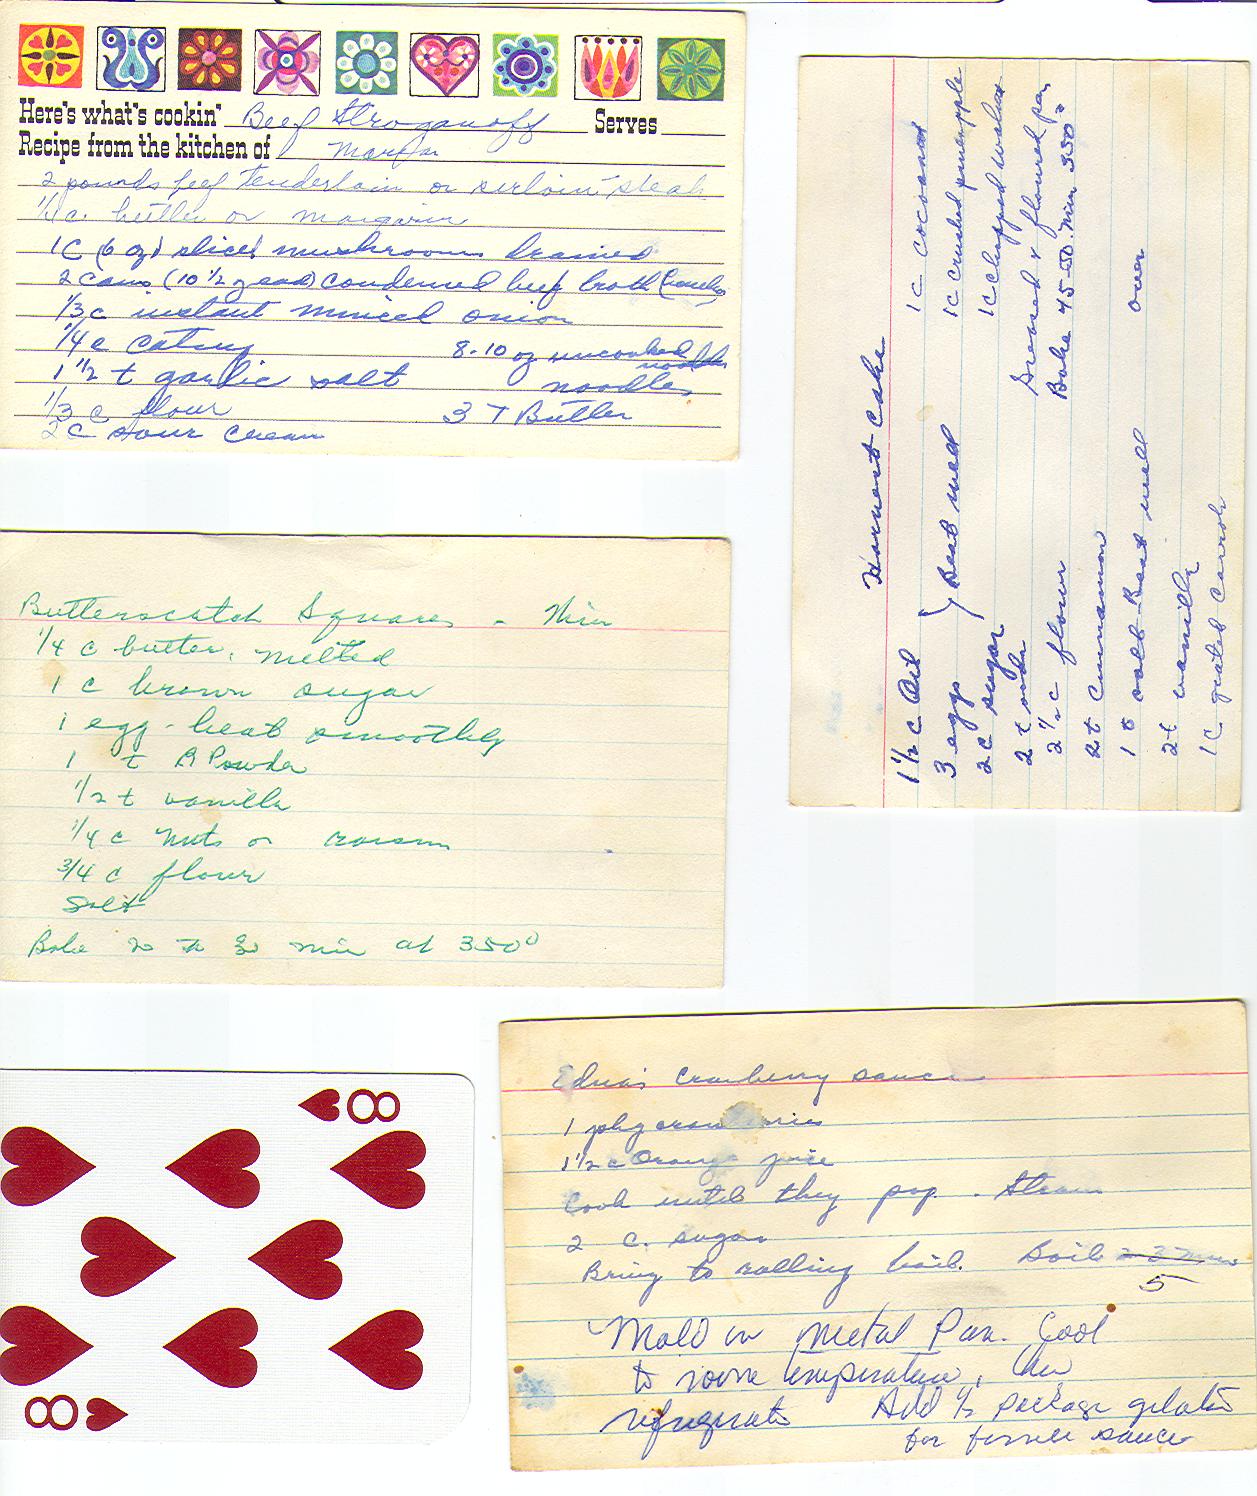 Here's what's cookin' Beef Stroganoff Serves
Recipe from the kitchen of
2 pounds beef tenderloin or sirloin steak
1/4 c. butter or margarine
1C (6 oz) sliced mushrooms drained
2 cans (10 1/2 oz each) condensed beef broth
1/3 c instant minced onion
1/4 c catsup
8-10 oz uncooked noodles
1 1/2 t garlic salt
noodles
1/3 c flour
3 T Butter
2 c sour cream
Harvest Cake
1 1/2 c Oil
3 eggs
2 c sugar
Beat well
2 t soda
2 1/2 c flour
2t cinnamon
1 t salt Beat well
2t vanilla
1C grated carrots
1c cocoanut
1c crushed pineapple
1c chopped walnuts
Greased & floured pan
Bake 45-50 min 350°
oven
Butterscotch Squares -
1/4 c butter, melted
1 c brown sugar
1 egg - beat smoothly
1 t B Powder
1/2 t vanilla
1/4 c nuts or raisins
3/4 c flour
Salt
Bake 20 to 30 min at 350°
Edna's Cranberry sauce
1 pkg cranberries
1 1/2 c Orange juice
Cook until they pop.
2 c. sugar
Bring to rolling boil. Boil 2-3 min
5
Mold in metal Pan. Cool
to room temperature, then
refrigerate Add 1/2 package gelatin
for firmer sauce
8
8